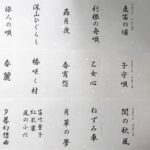 麦笛の頃
利根の舟唄
朧月夜
深山ひぐらし
旅人の唄
子守唄
乙女心
春宵想
椿咲く村
春麗
関の秋風
ねずみ車
月華の夢
夕暮幻想曲